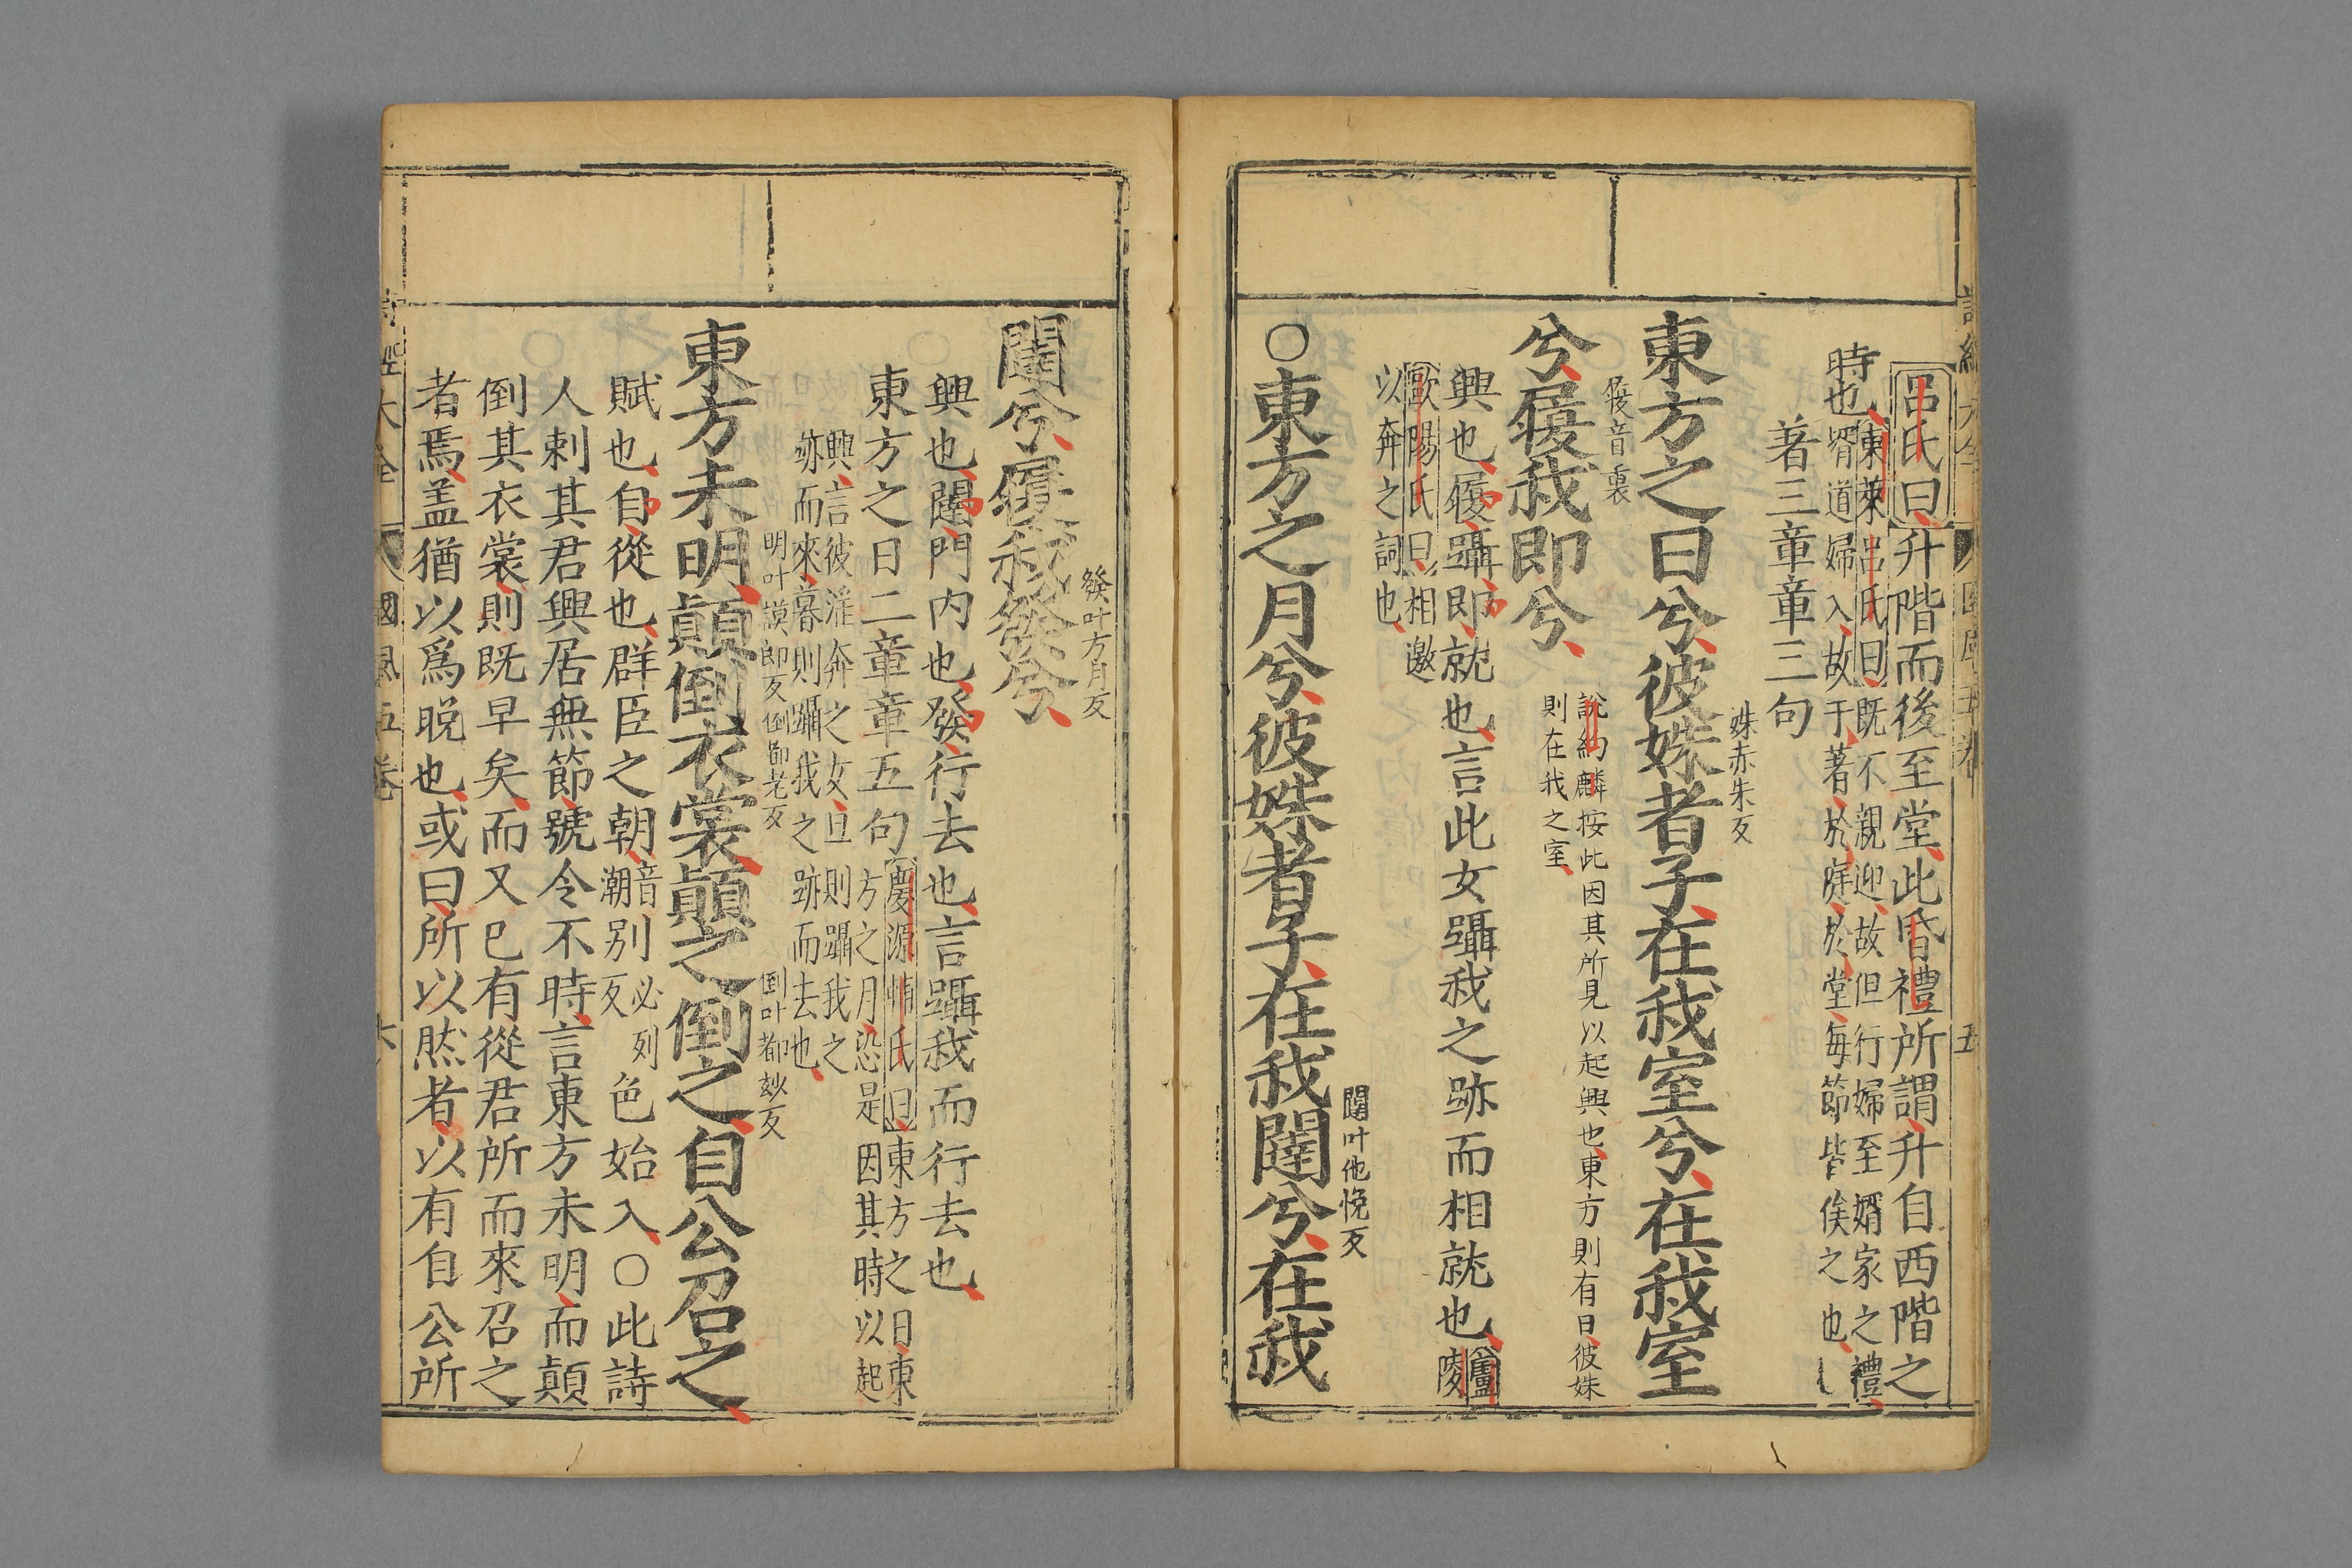 呂氏曰升階而後至堂此昏禮所謂升自西階之
時也東萊呂氏曰既不親迎故但行婦至婿家之禮
婿道婦入故于著於庭於堂每節皆俟之也
著三章章三句
東方之日兮彼姝者子在我室兮在我室
姝赤朱反
兮履我即兮
履音裏
說約麟按此因其所見以起興也東方則有日彼姝
則在我之室
興也履躡即就也言此女躡我之跡而相就也廬陵
歐陽氏曰相邀
以奔之詞也
○東方之月兮彼姝者子在我闥兮在我
闥叶他悅反
闥兮履我發兮
發叶方月反
興也闥門內也發行去也言躡我而行去也
東方之日二章章五句慶源輔氏曰東方之日東
方之月恐是因其時以起
興言彼淫奔之女旦則躡我之
跡而來暮則躡我之跡而去也
東方未明顛倒衣裳顛之倒之自公召之
明叶謨郎反倒都老反
倒叶都妙反
賦也自從也群臣之朝音潮別必列反色始入○此詩
人刺其君興居無節號令不時言東方未明而顛
倒其衣裳則既早矣而又已有從君所而來召之
者焉盖猶以爲晚也或曰所以然者以有自公所
詩經大全 國風五卷 六